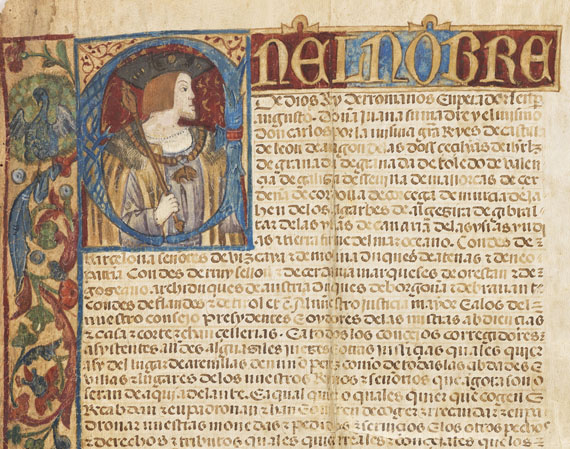 EN EL NOBRE
De dios Rey de rromanos Enperador senp
augusto. doña juana su madre y el mismo
don carlos por la misma gra Reyes de castilla
de leon de aragon de las dos secilias de
de granada de toledo de valen
çia de galizia de seuilla de mallorcas de cer
deña de cordoua de corcega de murcia de ja
hen de los algarbes de algezira de gibral
tar de las yslas de canaria de las yslas yndi
as tierra firme del mar oceano. Condes de
barcelona señores de vizcaya de molina duques de atenas de neo
patria Condes de rruysellon de cerdania marqueses de oristan de
goceano archiduques de austria duques de borgoña de brauante
Condes de flandes de tirol etc. A nuestro justicia mayor E a los del
nuestro consejo presydentes E oydores de las nuestras abdiencias
casa corte chancellerias. E a todos los concejos corregidores
asystentes alldes alguaziles justiçias quales quier
asy del lugar de como de todas las cibdades E
villas lugares de los nuestros Reynos señorios que agora son o
seran de aqui adelante. E a qual quier o quales quier que cogen E
Recabdan enpadronan han de coger rrecabdar enpa
dronar nuestras monedas pedidos serviçios E los otros pechos
derechos tributos quales quier rreales conçejales que los